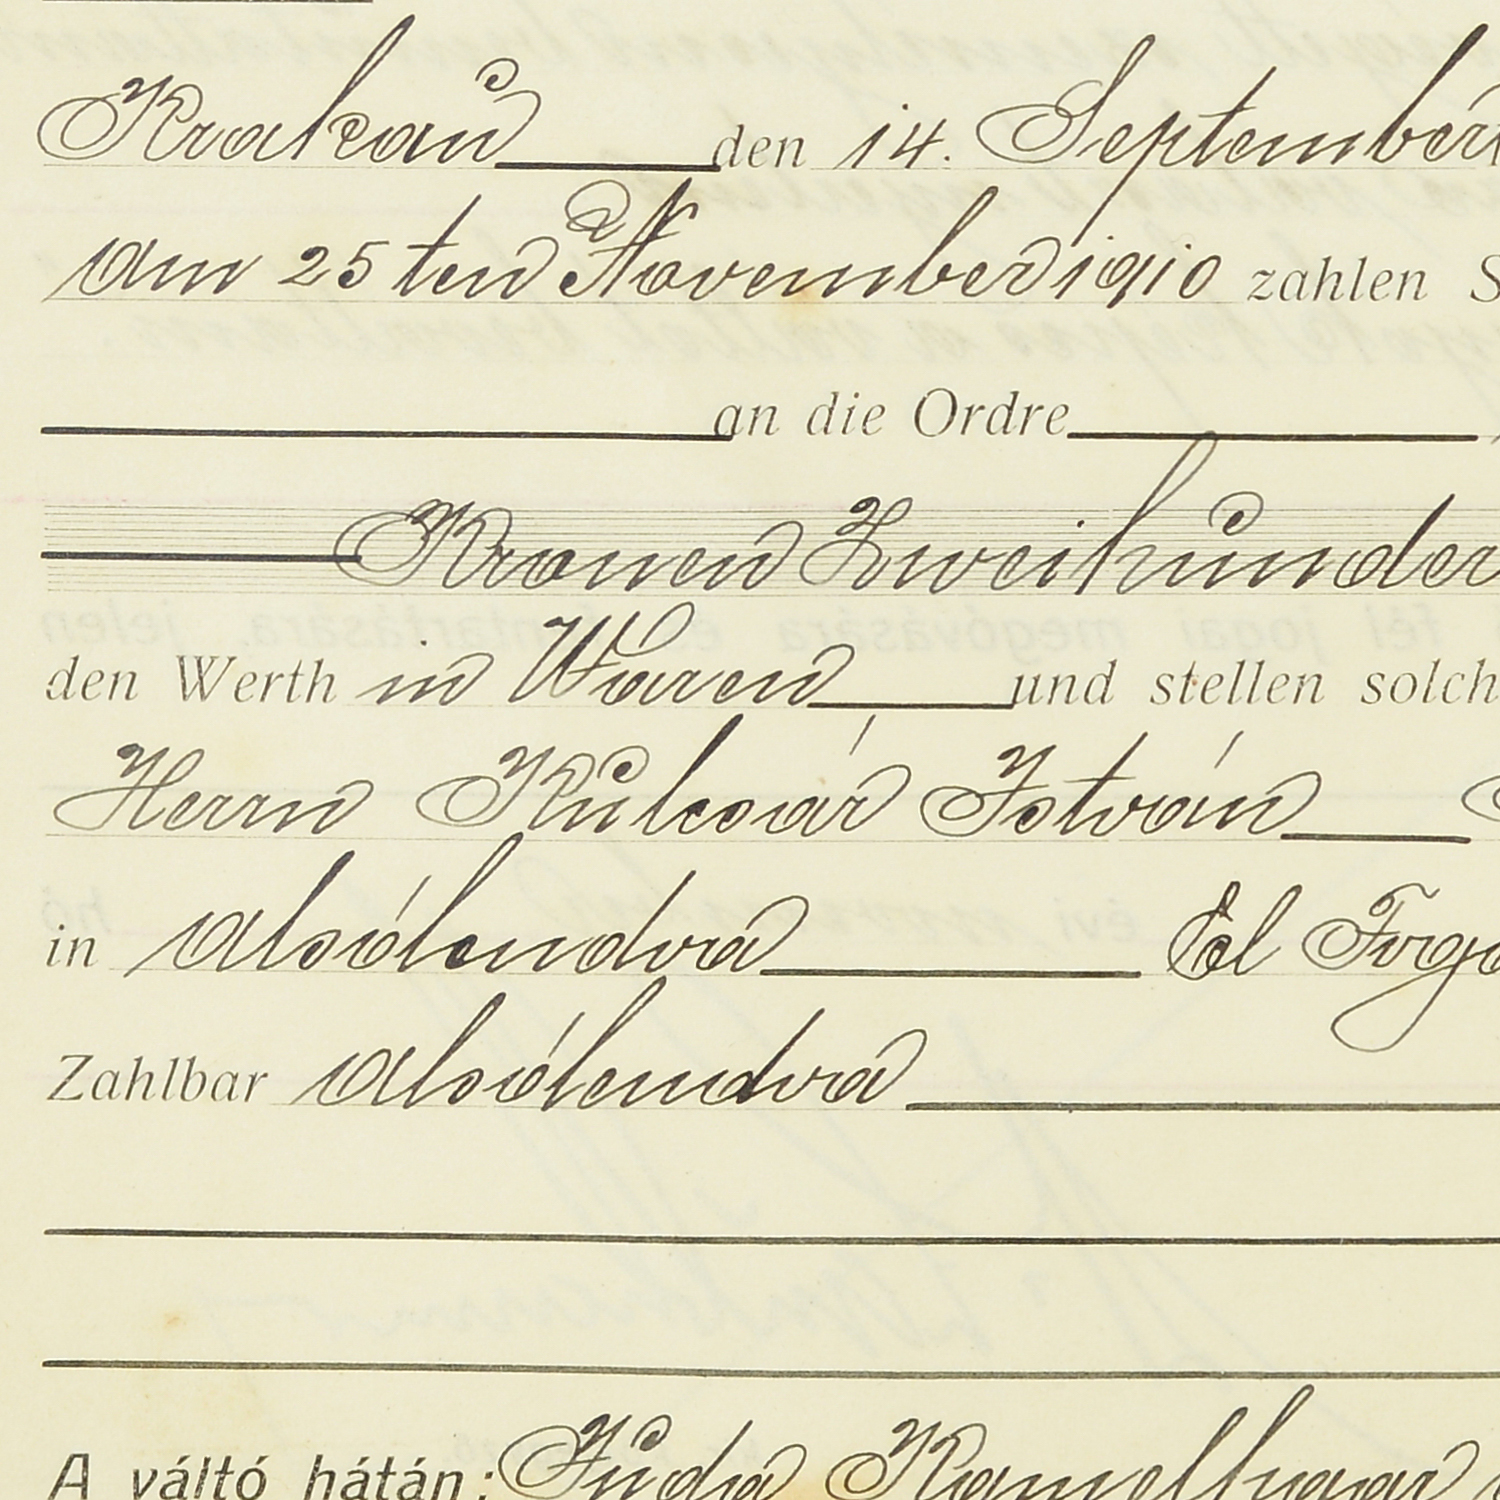 Krakau den 14. September
am 25ten November 1910 zahlen S
an die Ordre
Kronen Zweihunder
den Werth in Waren und stellen solch
Herrn Kulcsár István
in Alsólendva El Foga
Zahlbar Alsólendva
A váltó hátán: Juda Kamelhaar